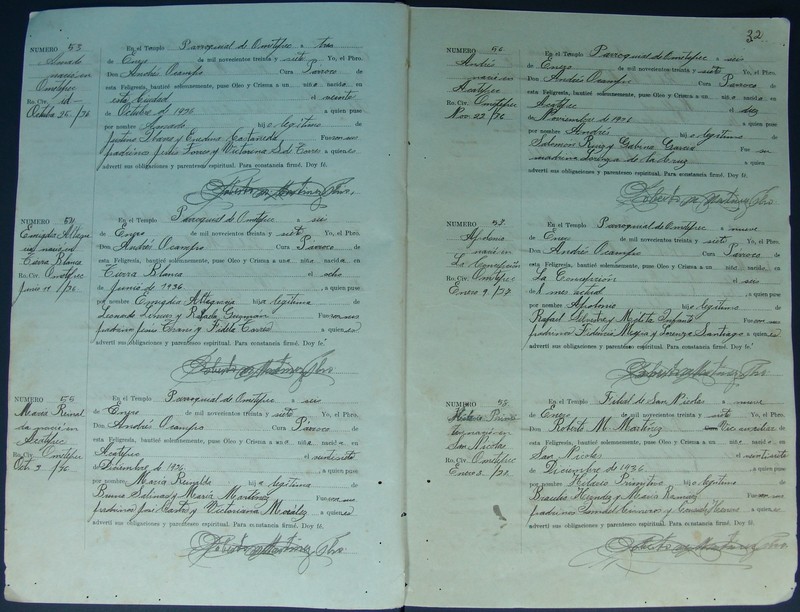 NUMERO 53
Amado
nació en
Ometepec
Ro. Civ. id.
Octubre 25/36
En el Templo Parroquial de Ometepec a tres
de Enero de mil novecientos treinta y siete Yo, el Pbro.
Don Andrés Ocampo Cura Párroco de
esta Feligresía, bauticé solemnemente, puse Oleo y Crisma a un niño nacido en
esta Ciudad el veinte
de Octubre de 1936 a quien puse
por nombre Amado hijo legítimo de
Fueron sus
padrinos a quienes
advertí sus obligaciones y parentesco espiritual. Para constancia firmé. Doy fé.
Roberto M. Martínez Pbro.
NUMERO 54
nació en
Tierra Blanca
Ro. Civ. Ometepec
Junio 11/36
En el Templo Parroquial de Ometepec a seis
de Enero de mil novecientos treinta y siete Yo, el Pbro.
Don Andrés Ocampo Cura Párroco de
esta Feligresía, bauticé solemnemente, puse Oleo y Crisma a una niña nacida en
Tierra Blanca el ocho
de Junio de 1936 a quien puse
por nombre Emigdia Altagracia hija legítima de
Leonardo y Rafaela Guzmán Fueron sus
padrinos y Fidela a quienes
advertí sus obligaciones y parentesco espiritual. Para constancia firmé. Doy fé.
Roberto M. Martínez Pbro.
NUMERO 55
María Reinal
da nació en
Acatepec
Ro. Civ. Ometepec
3/36
En el Templo Parroquial de Ometepec a seis
de Enero de mil novecientos treinta y siete Yo, el Pbro.
Don Andrés Ocampo Cura Párroco de
esta Feligresía, bauticé solemnemente, puse Oleo y Crisma a una niña nacida en
Acatepec el veintisiete
de 1936 a quien puse
por nombre María Reinalda hija legítima de
Bruno Salinas y María Martínez Fueron sus
padrinos José Castro y Victoriana Morales a quienes
advertí sus obligaciones y parentesco espiritual. Para constancia firmé. Doy fé.
Roberto M. Martínez Pbro.
32
NUMERO 56
Andrés
nació en
Acatepec
Ro. Civ. Ometepec
Nov. 22/36
En el Templo Parroquial de Ometepec a seis
de Enero de mil novecientos treinta y siete Yo, el Pbro.
Don Andrés Ocampo Cura Párroco de
esta Feligresía, bauticé solemnemente, puse Oleo y Crisma a un niño nacido en
Acatepec el diez
de Noviembre de 1936 a quien puse
por nombre Andrés hijo legítimo de
y Gabina García Fue su
madrina Lorenza de la Cruz a quien
advertí sus obligaciones y parentesco espiritual. Para constancia firmé. Doy fé.
Roberto M. Martínez Pbro.
NUMERO
Apolonio
nació en
La Concepción
Ro. Civ. Ometepec
Enero 9/37
En el Templo Parroquial de Ometepec a nueve
de Enero de mil novecientos treinta y siete Yo, el Pbro.
Don Andrés Ocampo Cura Párroco de
esta Feligresía, bauticé solemnemente, puse Oleo y Crisma a un niño nacido en
La Concepción el seis
del mes actual a quien puse
por nombre Apolonio hijo legítimo de
Rafael Silvestre y Fueron sus
padrinos y Lorenza Santiago a quienes
advertí sus obligaciones y parentesco espiritual. Para constancia firmé. Doy fé.
Roberto M. Martínez Pbro.
NUMERO
Hilario Primiti
vo nació en
San Nicolas
Ro. Civ. Ometepec
Enero
En el Templo de San Nicolas a nueve
de Enero de mil novecientos treinta y siete Yo, el Pbro.
Don Roberto M. Martínez Vicario de
esta Feligresía, bauticé solemnemente, puse Oleo y Crisma a un niño nacido en
San Nicolas el
de Diciembre de 1936 a quien puse
por nombre Hilario Primitivo hijo legítimo de
y María Ramírez Fueron sus
padrinos a quienes
advertí sus obligaciones y parentesco espiritual. Para constancia firmé. Doy fé.
Roberto M. Martínez Pbro.